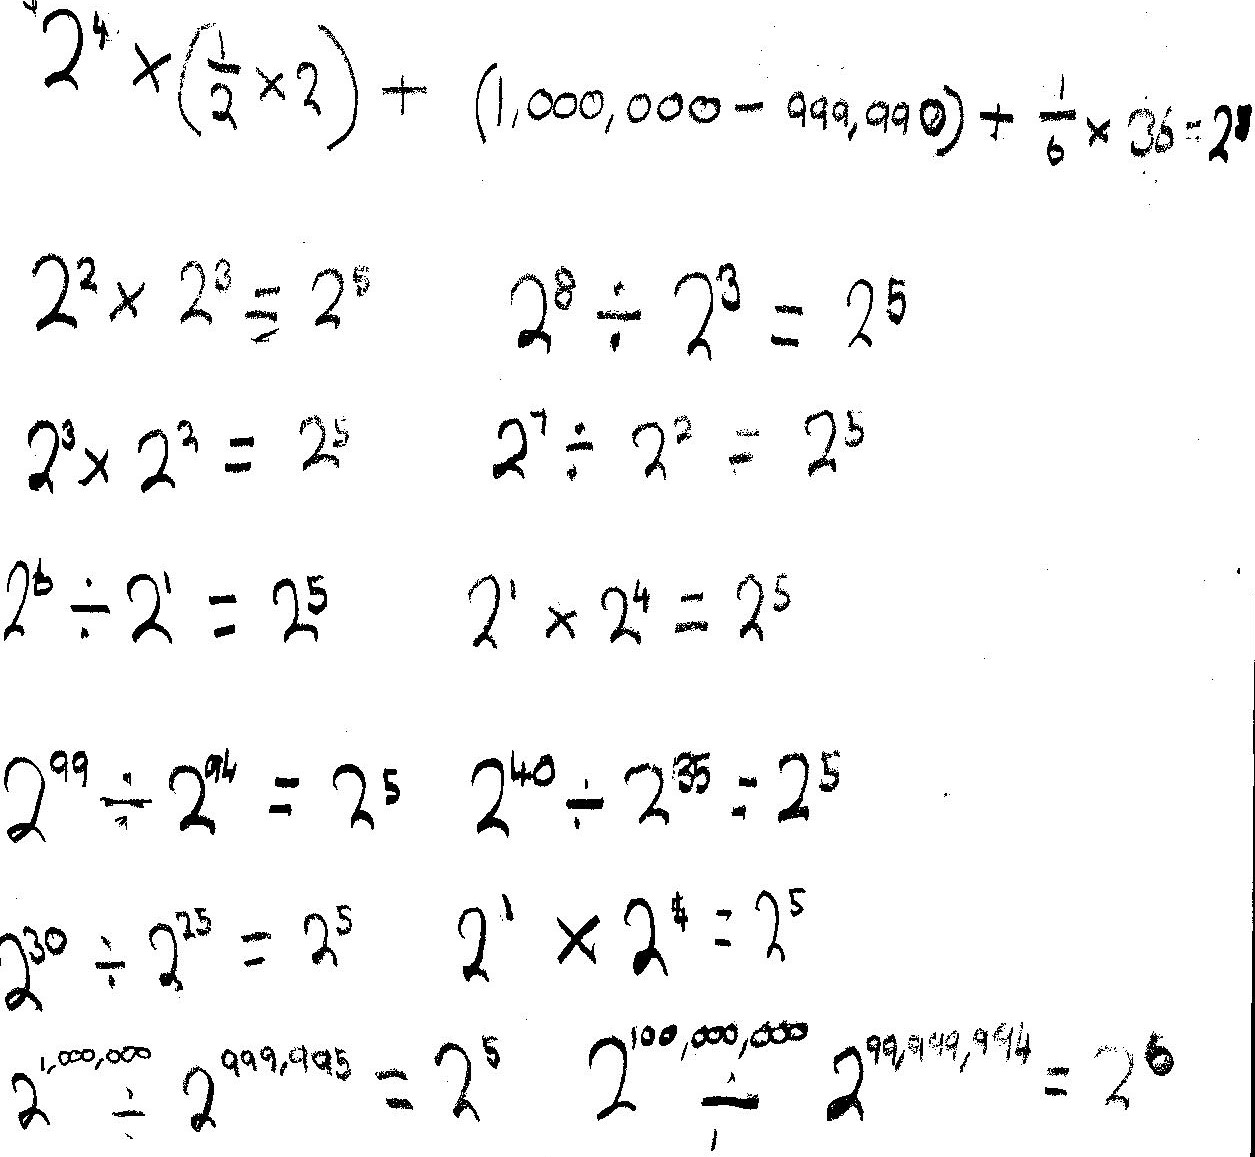 2⁴ × (1/2 × 2) + (1,000,000 - 999,990) + 1/6 × 36 = 2
2² × 2³ = 2⁵ 2⁸ ÷ 2³ = 2⁵
2³ × 2² = 2⁵ 2⁷ ÷ 2² = 2⁵
2⁶ ÷ 2¹ = 2⁵ 2¹ × 2⁴ = 2⁵
2⁹⁹ ÷ 2⁹⁴ = 2⁵ 2⁴⁰ ÷ 2³⁵ = 2⁵
2³⁰ ÷ 2²⁵ = 2⁵ 2¹ × 2⁴ = 2⁵
2^1,000,000 ÷ 2^999,995 = 2⁵ 2^100,000,000 ÷ 2^99,999,994 = 2⁶